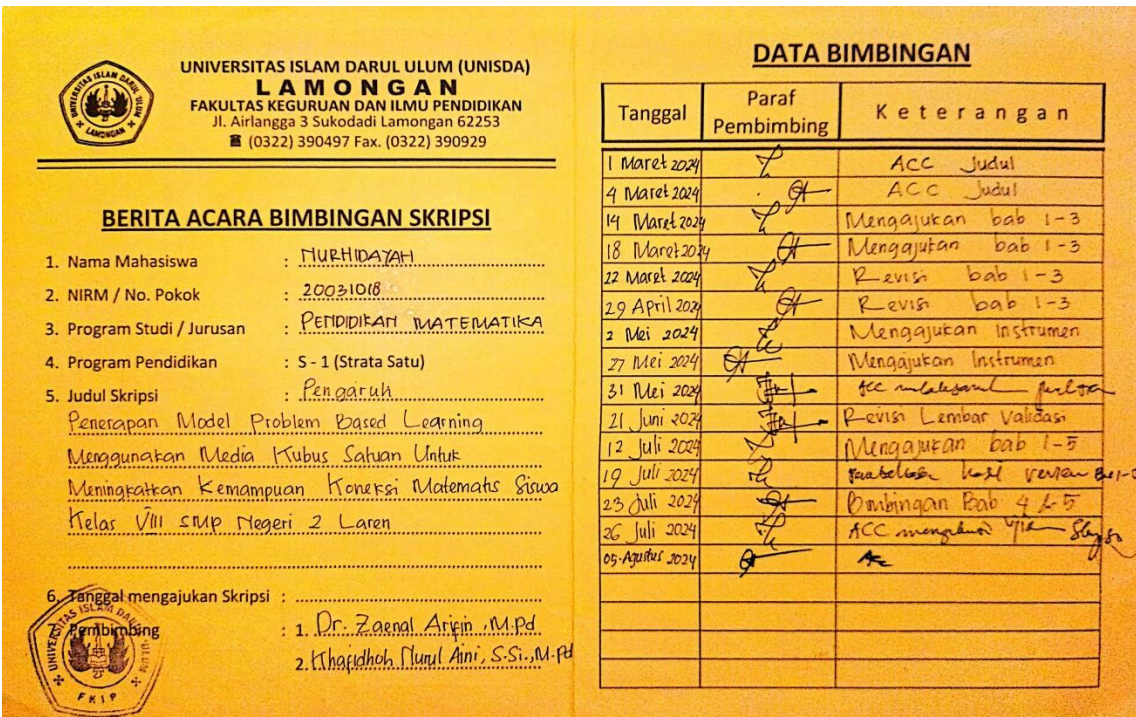 UNIVERSITAS ISLAM DARUL ULUM (UNISDA)
LAMONGAN
FAKULTAS KEGURUAN DAN ILMU PENDIDIKAN
Jl. Airlangga 3 Sukodadi Lamongan 62253
☎ (0322) 390497 Fax. (0322) 390929
BERITA ACARA BIMBINGAN SKRIPSI
1. Nama Mahasiswa : NURHIDAYAH
2. NIRM / No. Pokok : 20031018
3. Program Studi / Jurusan : PENDIDIKAN MATEMATIKA
4. Program Pendidikan : S - 1 (Strata Satu)
5. Judul Skripsi : Pengaruh
Penerapan Model Problem Based Learning
Menggunakan Media Kubus Satuan Untuk
Meningkatkan Kemampuan Koneksi Matematis Siswa
Kelas VIII SMP Negeri 2 Laren
6. Tanggal mengajukan Skripsi :
Pembimbing : 1. Dr. Zaenal Arifin, M.Pd
2. Khafidhoh Nurul Aini, S.Si., M.Pd
UNIVERSITAS ISLAM DARUL ULUM
FKIP
DATA BIMBINGAN
Tanggal Paraf Pembimbing Keterangan
1 Maret 2024 ACC Judul
4 Maret 2024 ACC Judul
14 Maret 2024 Mengajukan bab 1-3
18 Maret 2024 Mengajukan bab 1-3
22 Maret 2024 Revisi bab 1-3
29 April 2024 Revisi bab 1-3
2 Mei 2024 Mengajukan Instrumen
27 Mei 2024 Mengajukan Instrumen
31 Mei 2024 Acc
21 Juni 2024 Revisi Lembar Validasi
12 Juli 2024 Mengajukan bab 1-5
19 Juli 2024
23 Juli 2024 Bimbingan Bab 4 & 5
26 Juli 2024 ACC
05-Agustus 2024 Acc